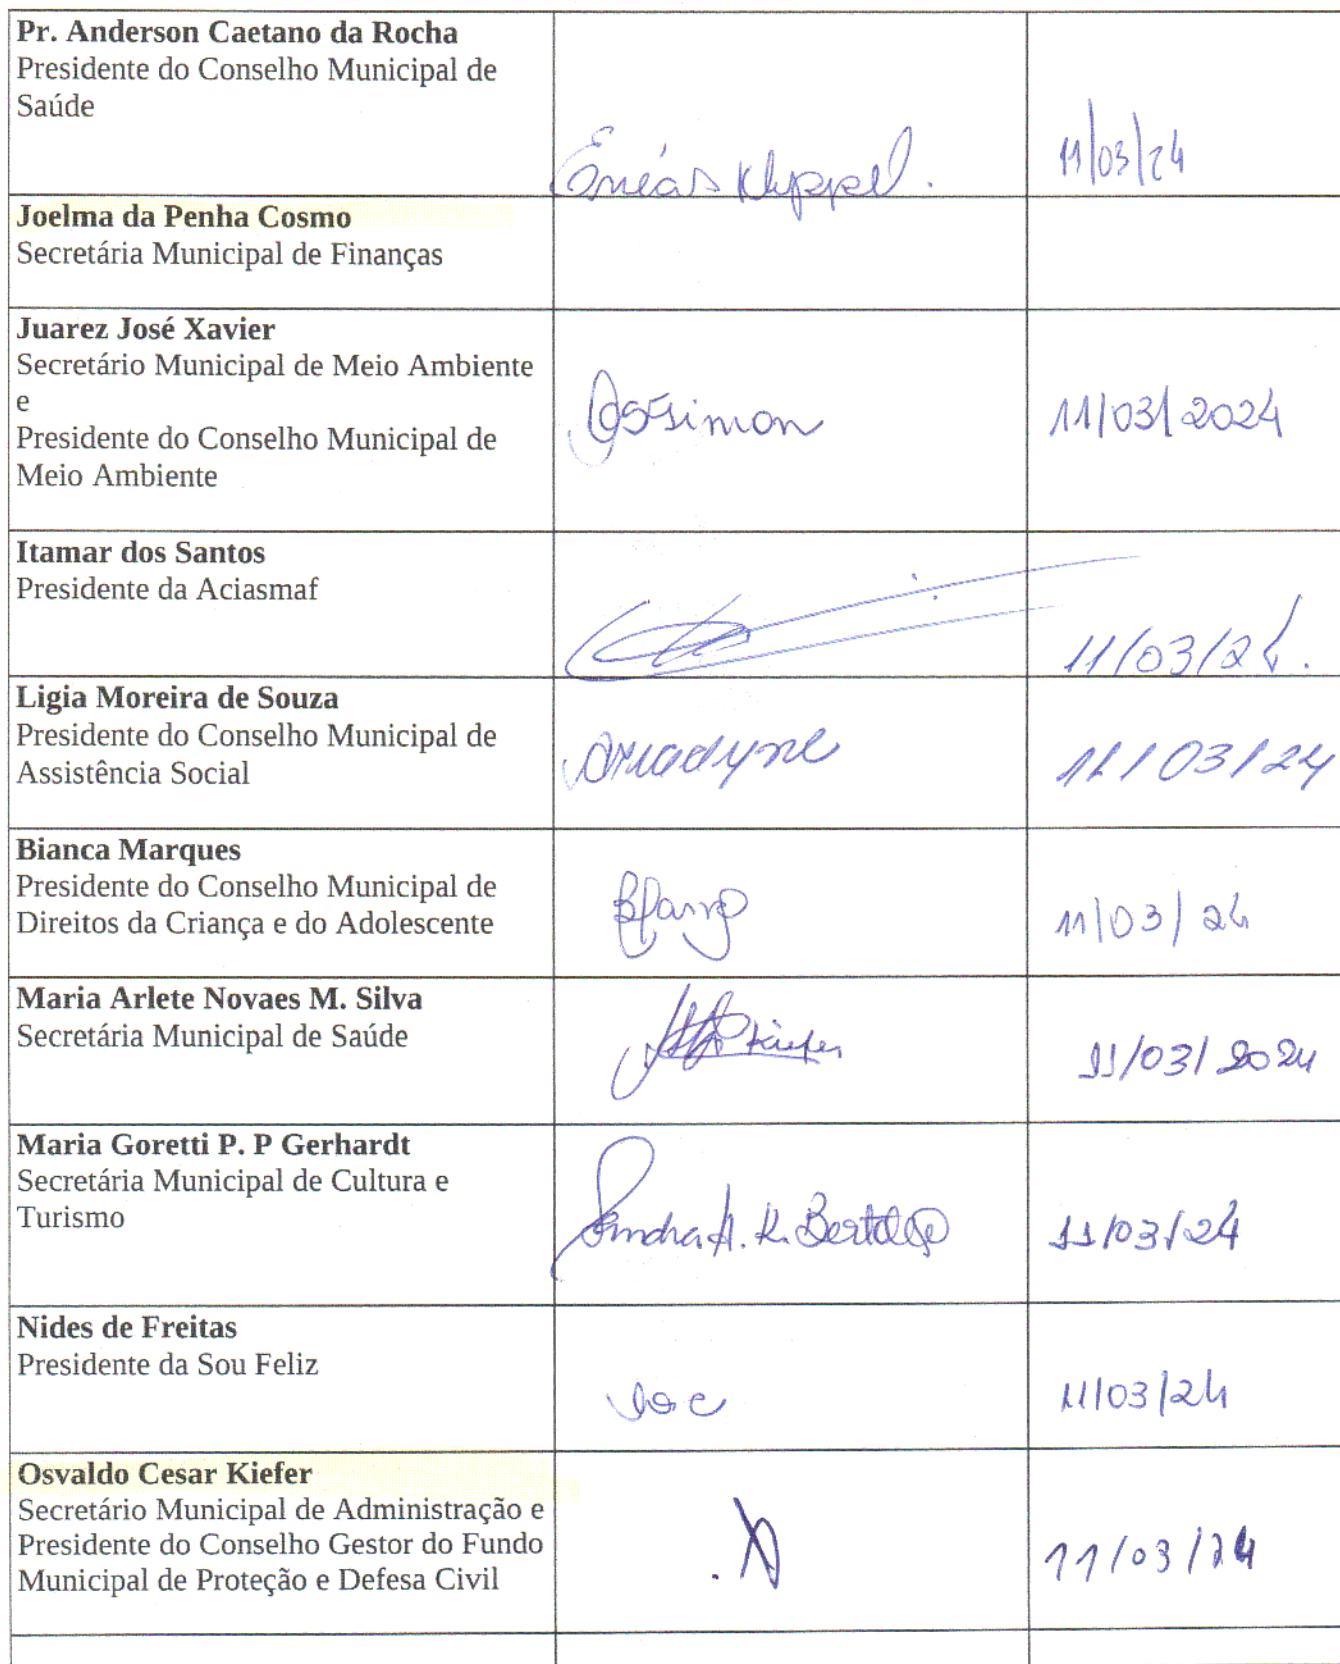 Pr. Anderson Caetano da Rocha
Presidente do Conselho Municipal de
Saúde
Enéas Klyppel.
11/03/24
Joelma da Penha Cosmo
Secretária Municipal de Finanças
Juarez José Xavier
Secretário Municipal de Meio Ambiente
e
Presidente do Conselho Municipal de
Meio Ambiente
11/03/2024
Itamar dos Santos
Presidente da Aciasmaf
11/03/24.
Ligia Moreira de Souza
Presidente do Conselho Municipal de
Assistência Social
Ariadyne
11/03/24
Bianca Marques
Presidente do Conselho Municipal de
Direitos da Criança e do Adolescente
11/03/24
Maria Arlete Novaes M. Silva
Secretária Municipal de Saúde
11/03/2024
Maria Goretti P. P Gerhardt
Secretária Municipal de Cultura e
Turismo
Sandra A. K.
11/03/24
Nides de Freitas
Presidente da Sou Feliz
11/03/24
Osvaldo Cesar Kiefer
Secretário Municipal de Administração e
Presidente do Conselho Gestor do Fundo
Municipal de Proteção e Defesa Civil
11/03/24